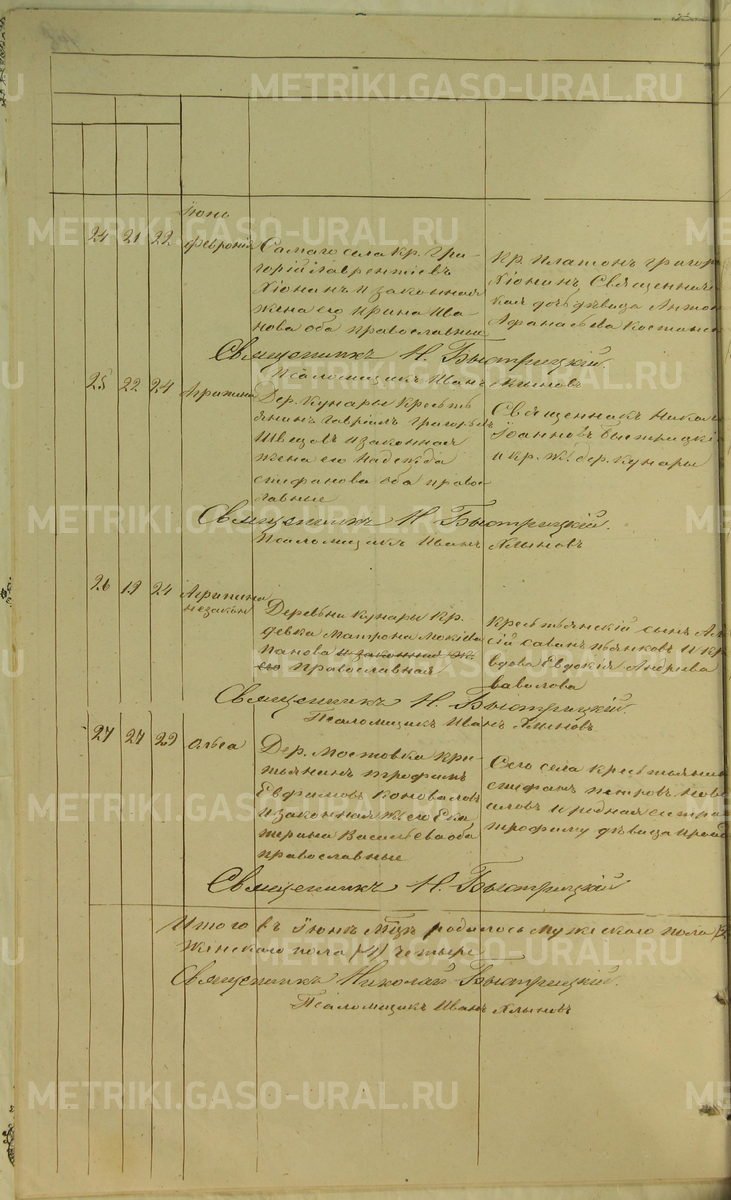 METRIKI.GASO-URAL.RU
Іюнь
24 21 22 Февронія
Самаго села Кр. Гри-
горій Лаврентіевъ
и законная
жена его Ирина Ива
нова оба православные
Кр. Платонъ Григор
Священниче
кая дочь дѣвица Антон
Афанасьева
Священникъ Н. Быстрицкій.
Псаломщикъ Иванъ
25 22 24 Агрипина
Дер. Кунары Кресть
янинъ Гавріилъ Григорьевъ
Швецовъ и законная
жена его Надежда
Стифанова оба право
славные
Священникъ Никол
Іоанновъ Быстрицкі
и кр. Ж. дер. Кунары
Священникъ Н. Быстрицкій.
Псаломщикъ Иванъ
26 19 24 Агрипина
незакон
Деревни Кунары Кр.
девка Матрона Мокіева
Панова и законная ж.
его Православная
Крестьянскій сынъ Ал
сій и кр
вдова Евдокія Андреева
Вавилова
Священникъ Н. Быстрицкій.
Псаломщикъ Иванъ
27 27 29 Ольга
Дер. Мостовка Кри
тьянинъ Трофимъ
Евфимовъ Коноваловъ
и законная Ж. его Ека
терина Васильева оба
православные
Сего села крестьянин
Стифанъ Петровъ
и родная сестра
Трофиму дѣвица
Священникъ Н. Быстрицкій
Итого въ Іюнѣ Мцѣ родилось Мужескаго пола
Женского пола (4) четыре
Священникъ Николай Быстрицкій.
Псаломщикъ Иванъ